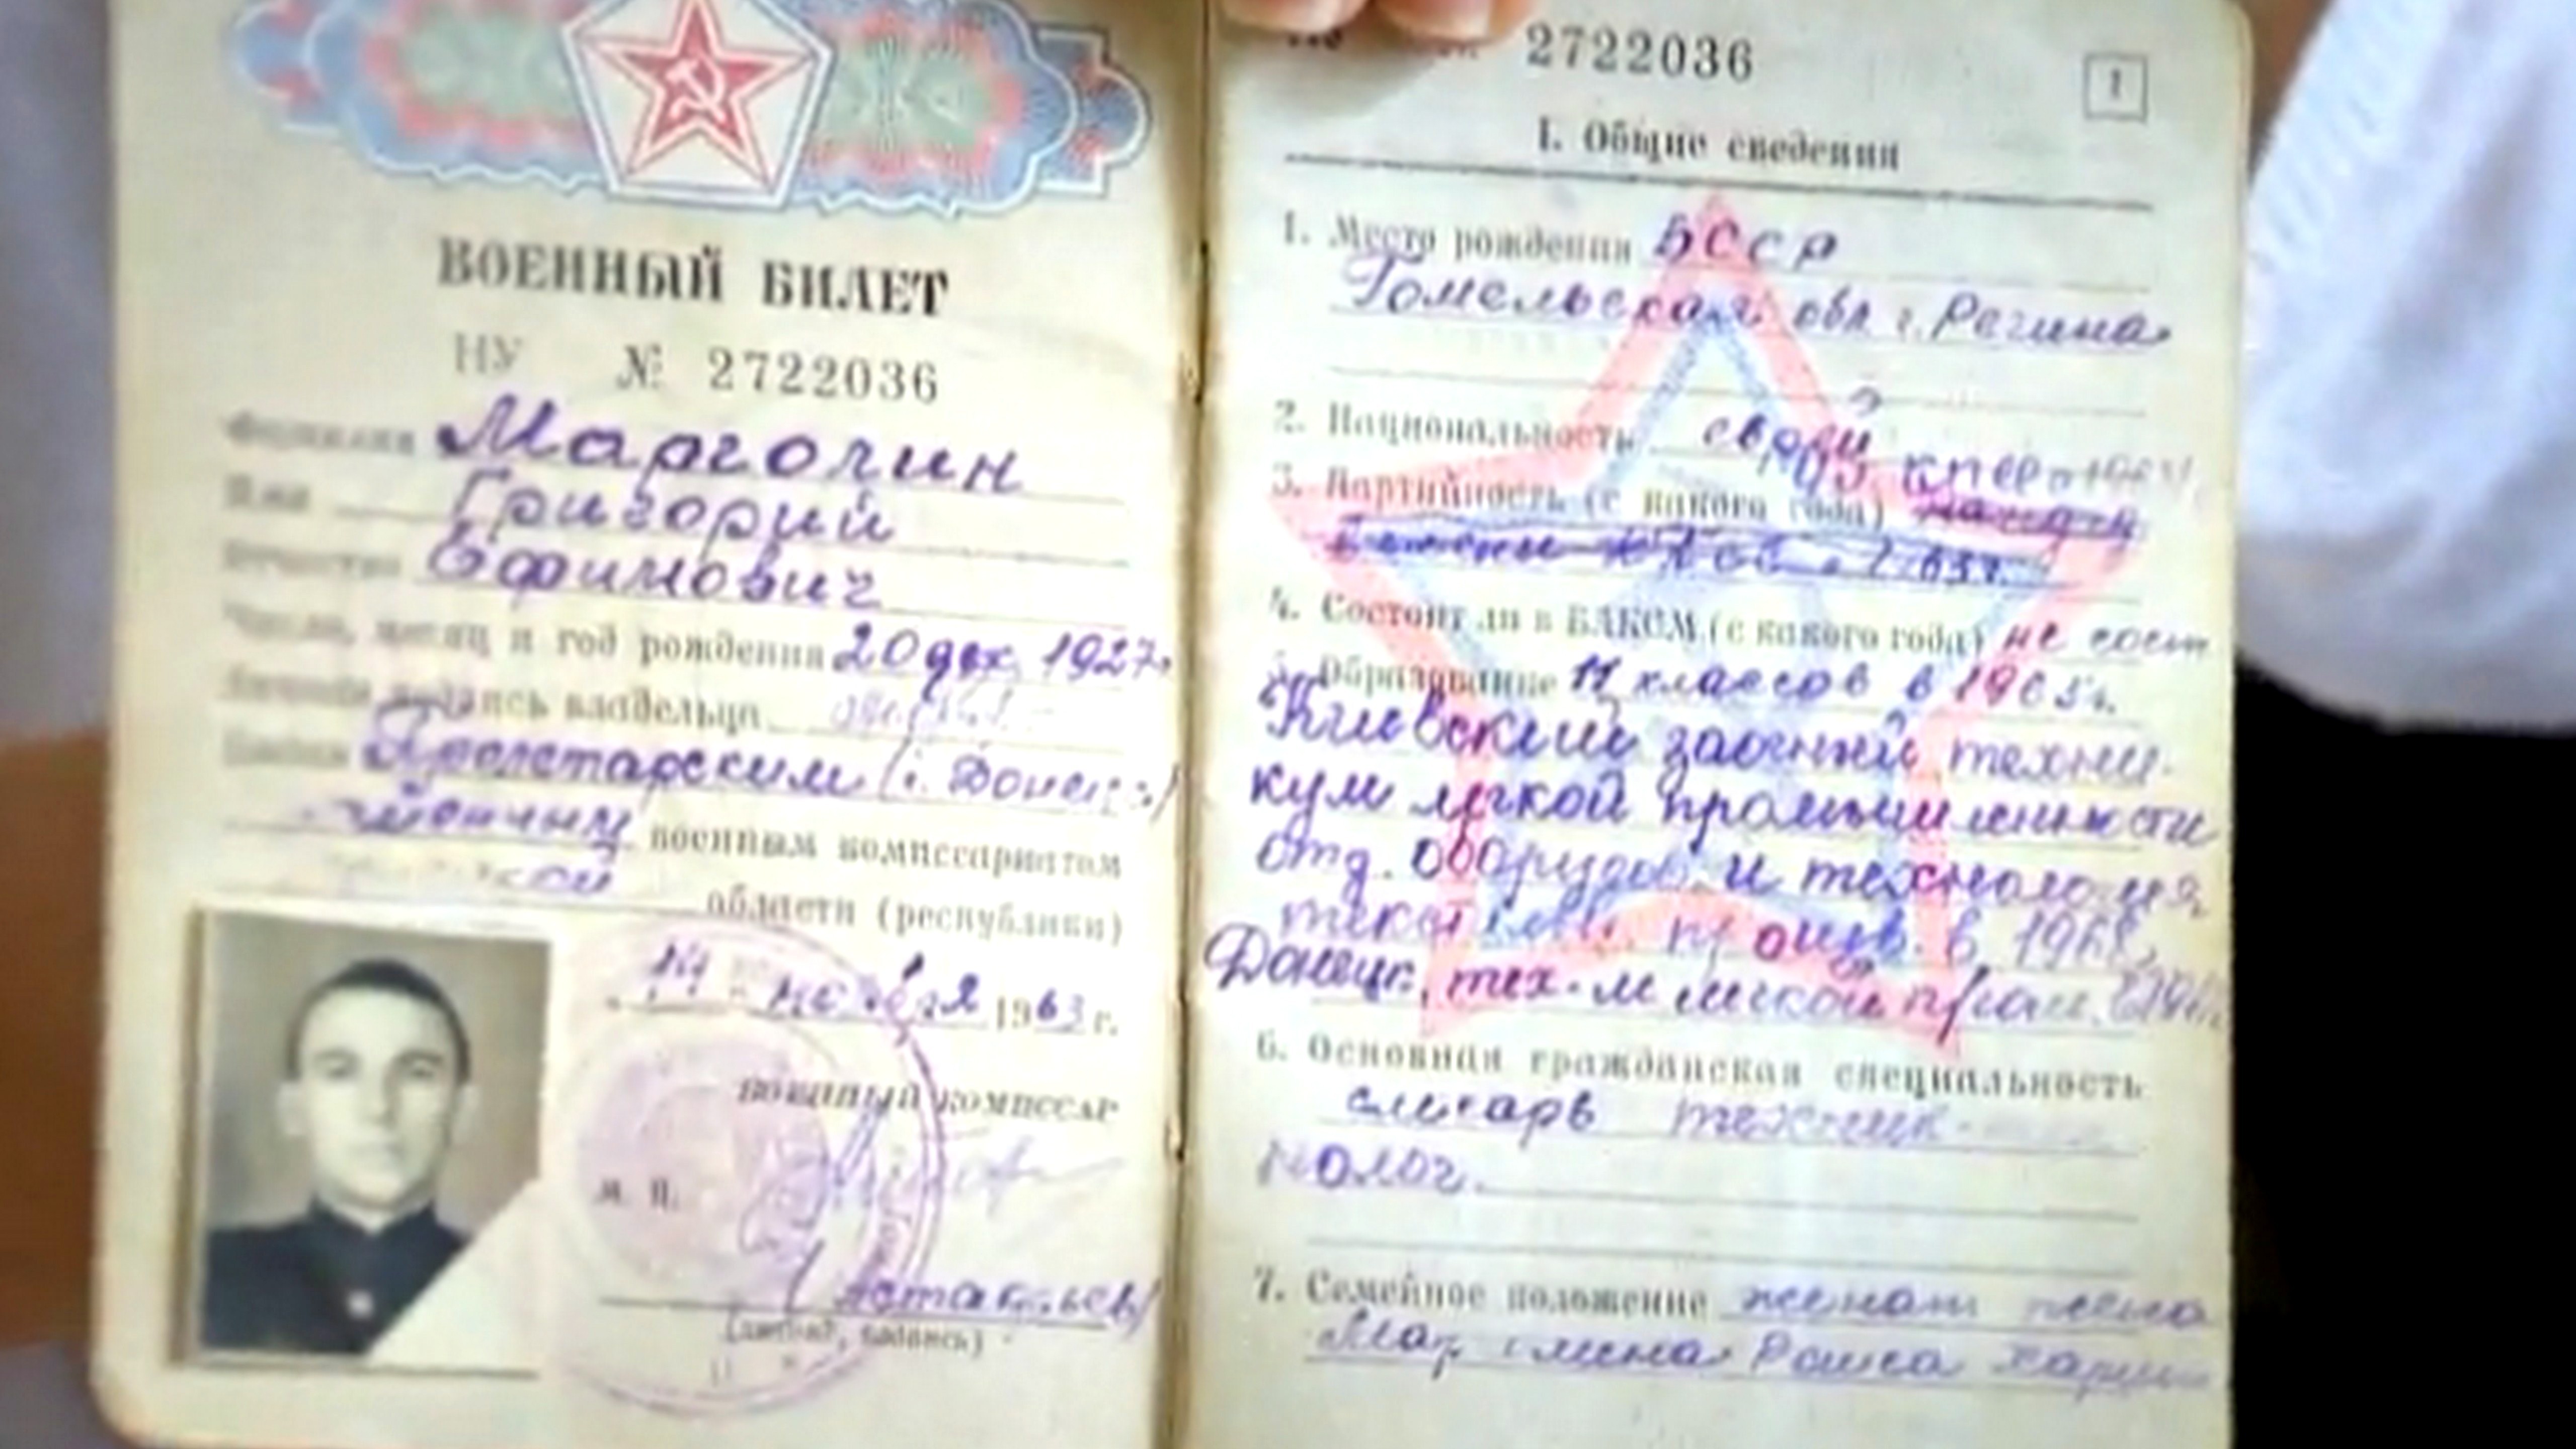 ВОЕННЫЙ БИЛЕТ
НУ № 2722036
Фамилия Марголин
Имя Григорий
Отчество Ефимович
Число, месяц и год рождения 20 дек. 1927г.
Личная подпись владельца
Выдан Пролетарским (г. Донецк)
военным комиссариатом
области (республики)
14 ноября 1963 г.
ВОЕННЫЙ КОМИССАР
М. П.
Астафьев)
2722036
1
I. Общие сведения
1. Место рождения БССР
Гомельская обл г. Речица
2. Национальность еврей
3. Партийность (с какого года) КПСС
4. Состоит ли в ВЛКСМ (с какого года) не сост
5. Образование 11 классов в 1965г.
Киевский заочный техни-
кум легкой промышленности
отд. оборудов. и технология
текстильн. произв. в 1968,
Донецк. тех-м легкой пром.
6. Основная гражданская специальность
слесарь техник-
нолог.
7. Семейное положение женат жена
Марголина Раиса